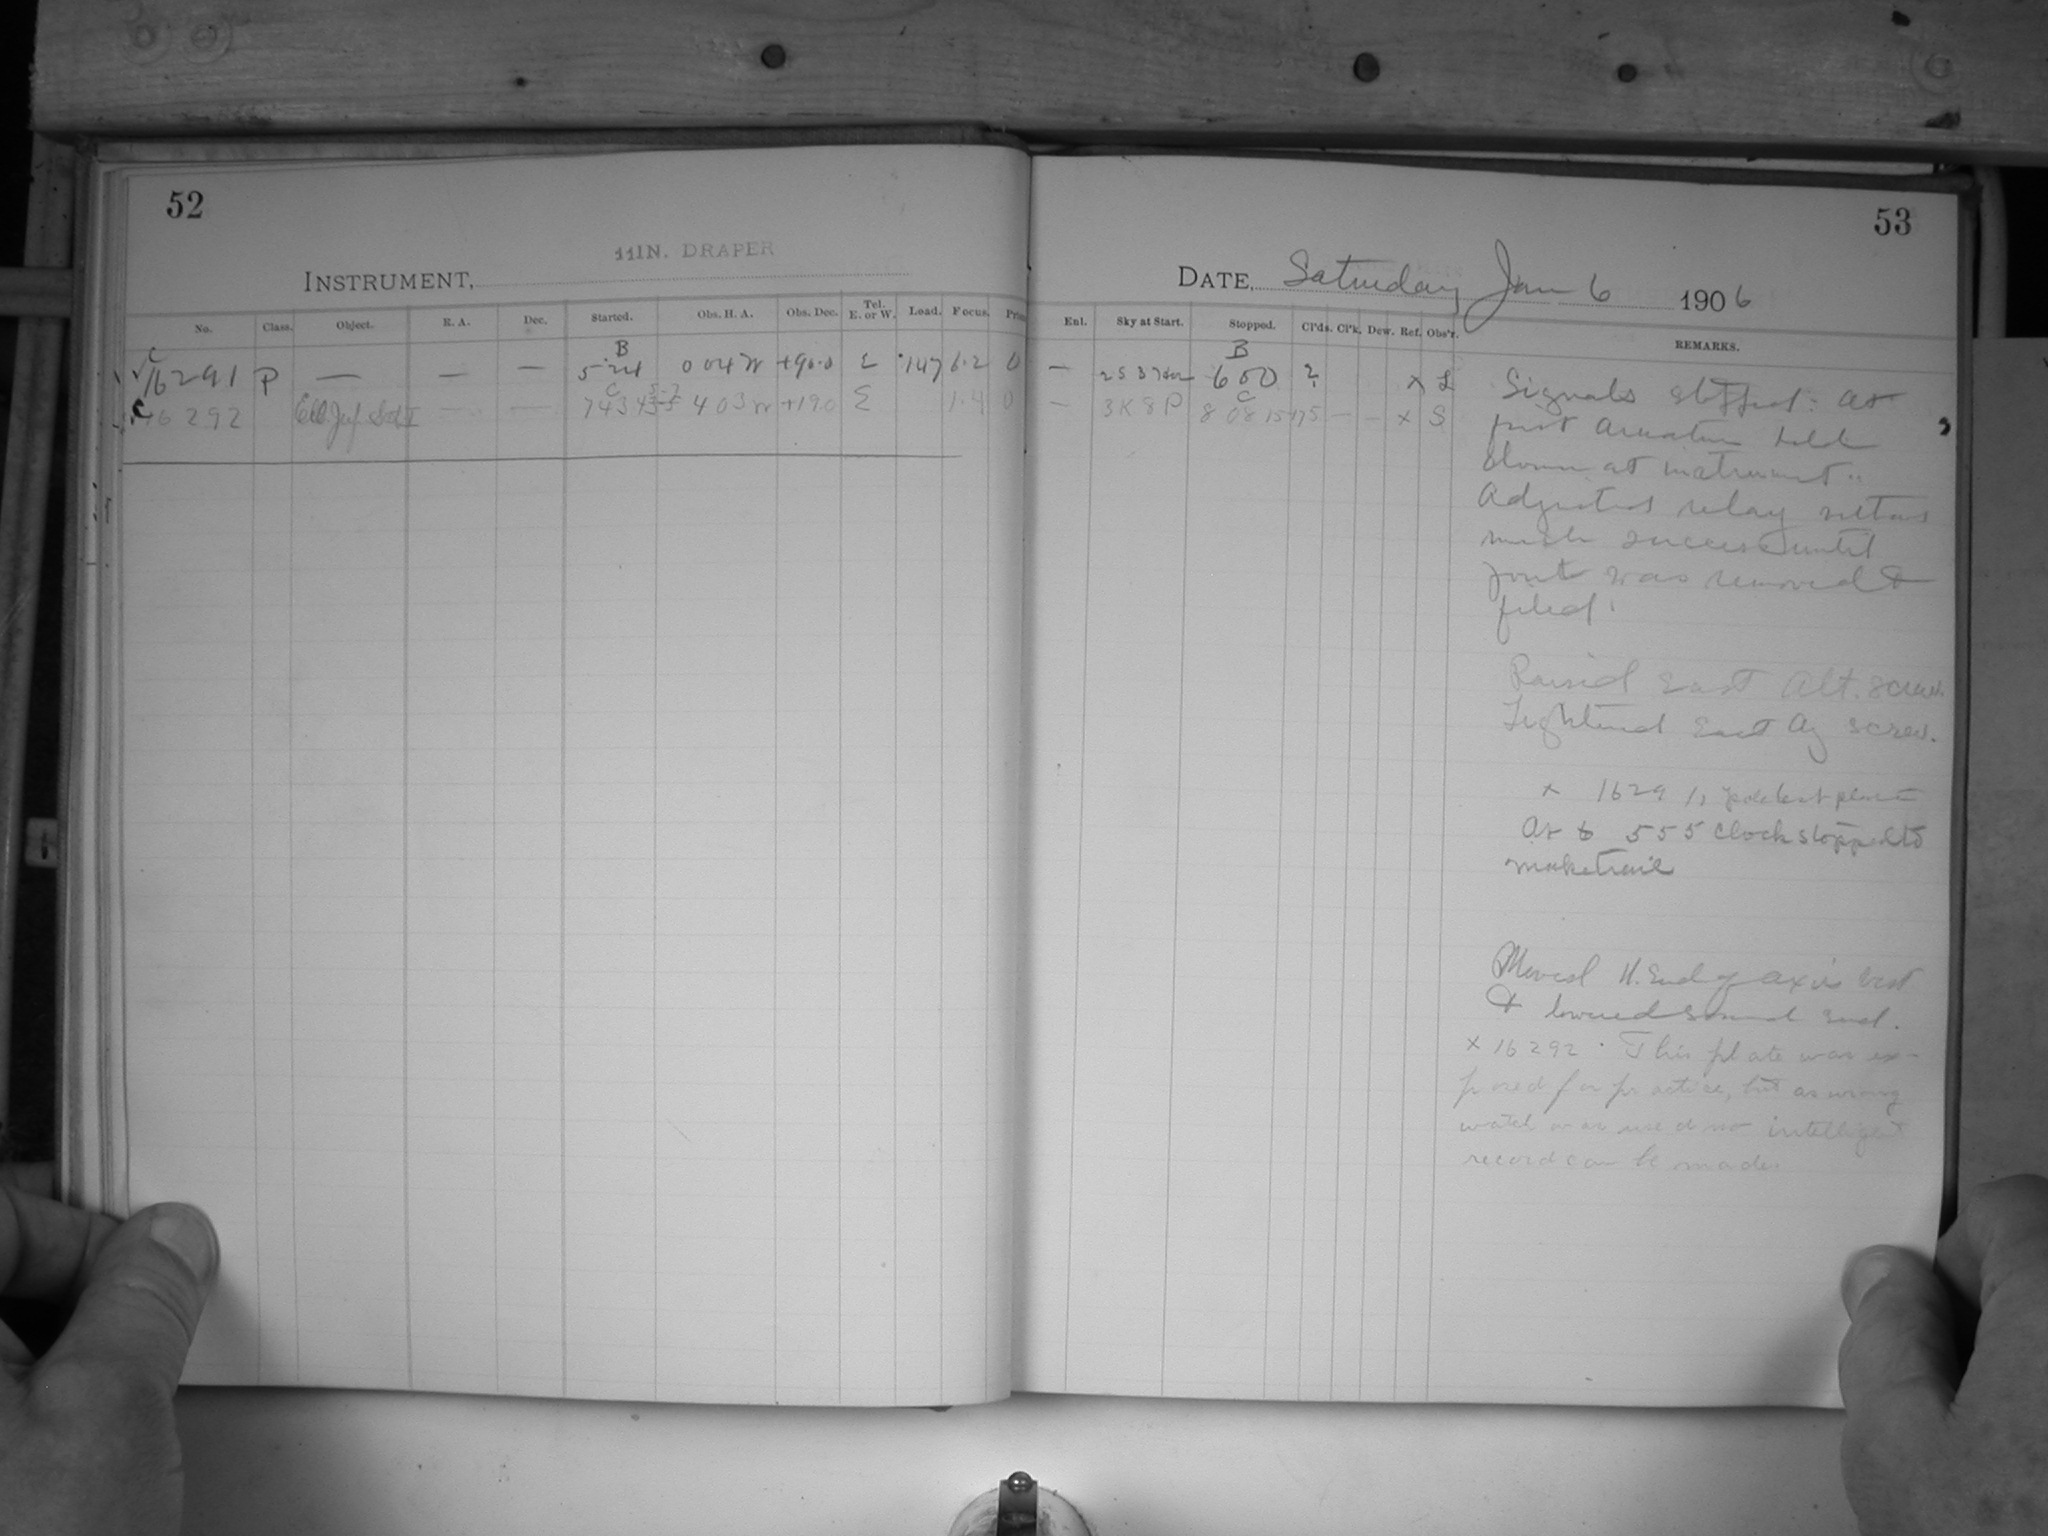 52
11IN. DRAPER
INSTRUMENT,
No. Class. Object. R. A. Dec. Started. Obs. H. A. Obs. Dec. Tel. E. or W. Load. Focus.
B
C 16291 P — — — 5 24 0 04 W +90.0 E 147 6.2 0
C
C 16292 Ecl. Jup. Sat I — — 7 43 43 4 03 W +19.0 E 1.4 0
53
DATE, Saturday Jan 6 1906
Enl. Sky at Start. Stopped. Cl'ds. Cl'k. Dew. Ref. Obs'r. REMARKS.
B
— 6 00 ? x L
C
— 3K 8P 8 08 15 — — x S
Signals stopped: at
first armature held
down at instrument.
Adjusted relay without
much success until
point was removed &
filed.
Raised East Alt. screw.
Tightened East Az screw.
x 16291, plate
At 5 55 clock stopped to
make trail
Moved N. End of axis West
& lowered end.
x 16292. This plate was ex-
posed for practice, but as wrong
watch was used no intelligent
record can be made.